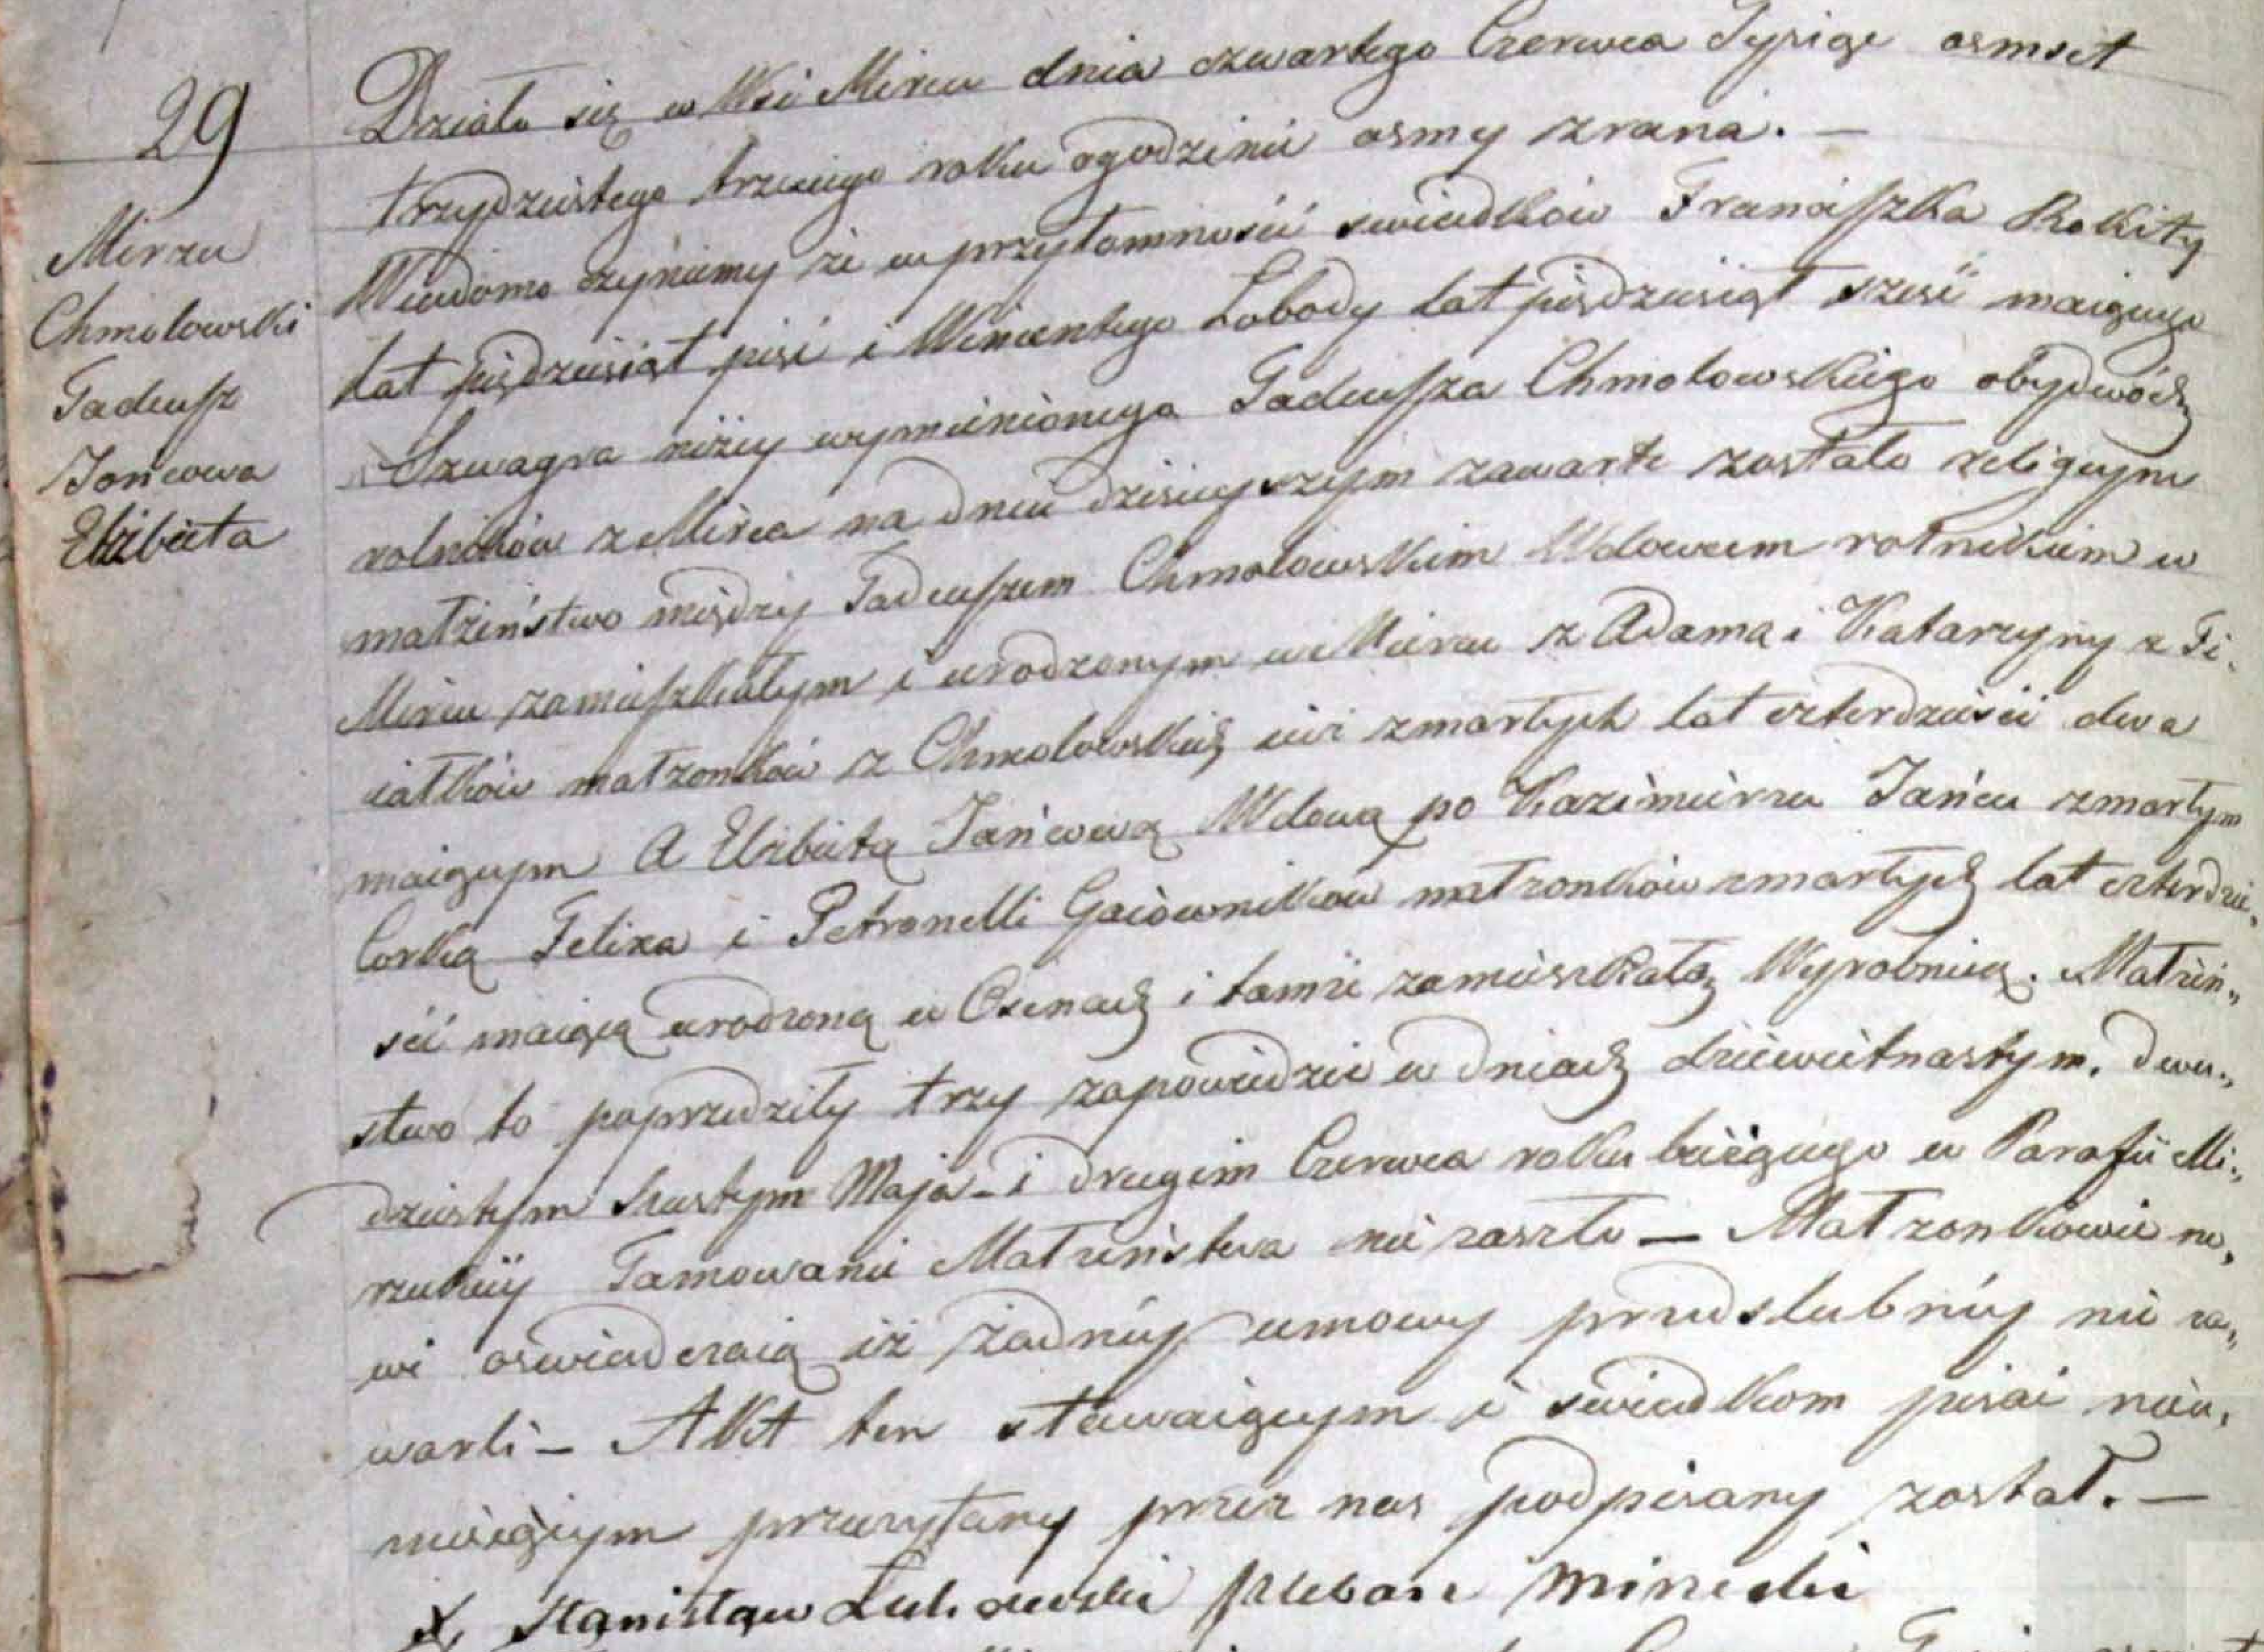 29
Mirzec
Chmolowski
Tadeusz
Jońcowa
Elżbieta
Działo się w Wsi Mircu dnia czwartego Czerwca Tysiąc osmset
trzydziestego trzeciego roku ogodzinie osmy zrana. —
Wiadomo czyniemy że w przytomności swiadków Franciszka Rokity
lat piędziesiąt pięć i Wincentego Łobody lat piędziesiąt sześć maiącego
Szwagra niżey wymienionego Tadeusza Chmolowskiego obydwóch
rolników z Mirca na dniu dzisieyszym zawarte zostało religiyne
małżeństwo między Tadeuszem Chmolowskim Wdowcem rolnikiem w
Mircu zamieszkałym i urodzonym w Mircu z Adama i Katarzyny z Fi„
iałków małżonków z Chmolowskich iuż zmarłych lat czterdzieści dwa
maiącym A Elżbietą Jańcową Wdową po Kazimierzu Jańcu zmarłym
Corką Felixa i Petronelli Gaiówników małżonków zmarłych lat czterdzie„
ści maiącą urodzoną w Osinach i tamże zamieszkałą Wyrobnicą. Małżeń„
stwo to poprzedziły trzy zapowiedzie w dniach dziewiętnastym, dwu„
dziestym szustym Maja – i drugim Czerwca roku bieżącego w Parafii Mi„
rzeckiey Tamowanie Małżeństwa nie zaszło — Małżonkowie no„
wi oswiadczaią iż żadney umowy przedslubney nie za„
warli – Akt ten stawaiącym i swiadkom pisać nieu„
mieiącym przeczytany przez nas podpisany został. —
X. Stanisław pleban mirzecki